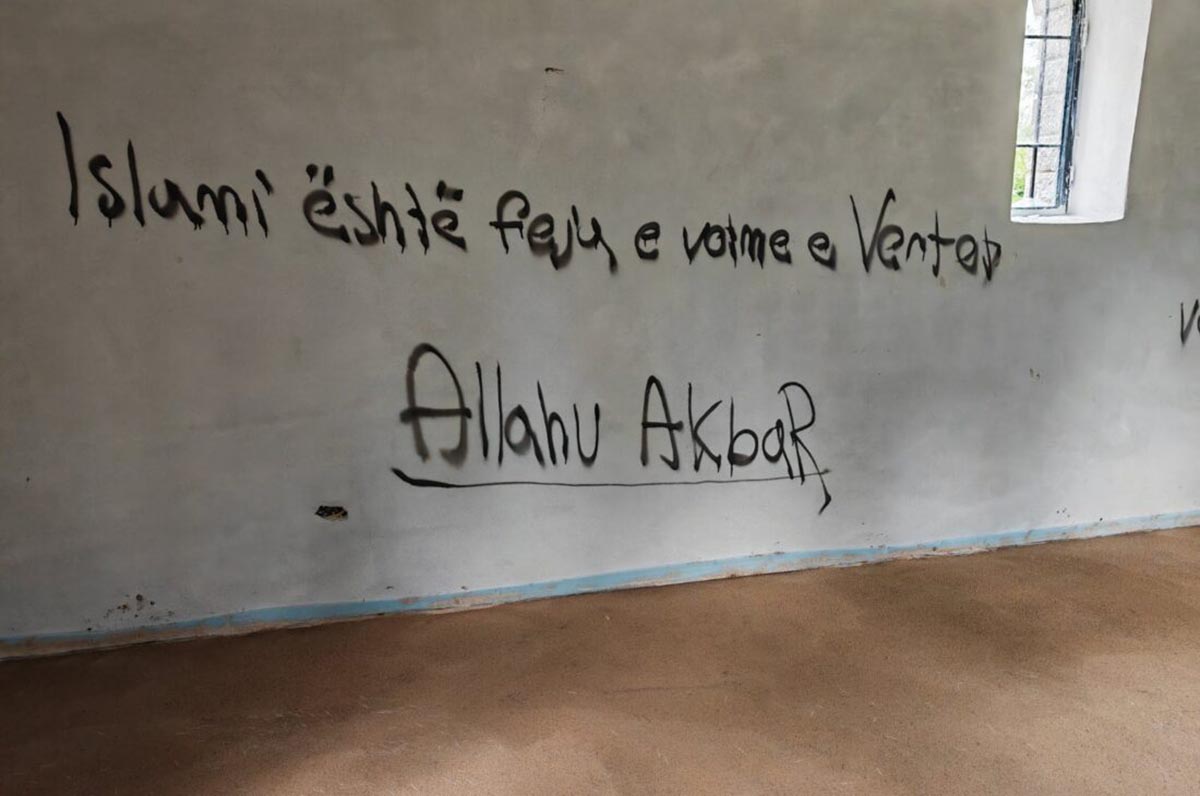 Islami është feja e vetme e Vertet
Allahu AkbaR